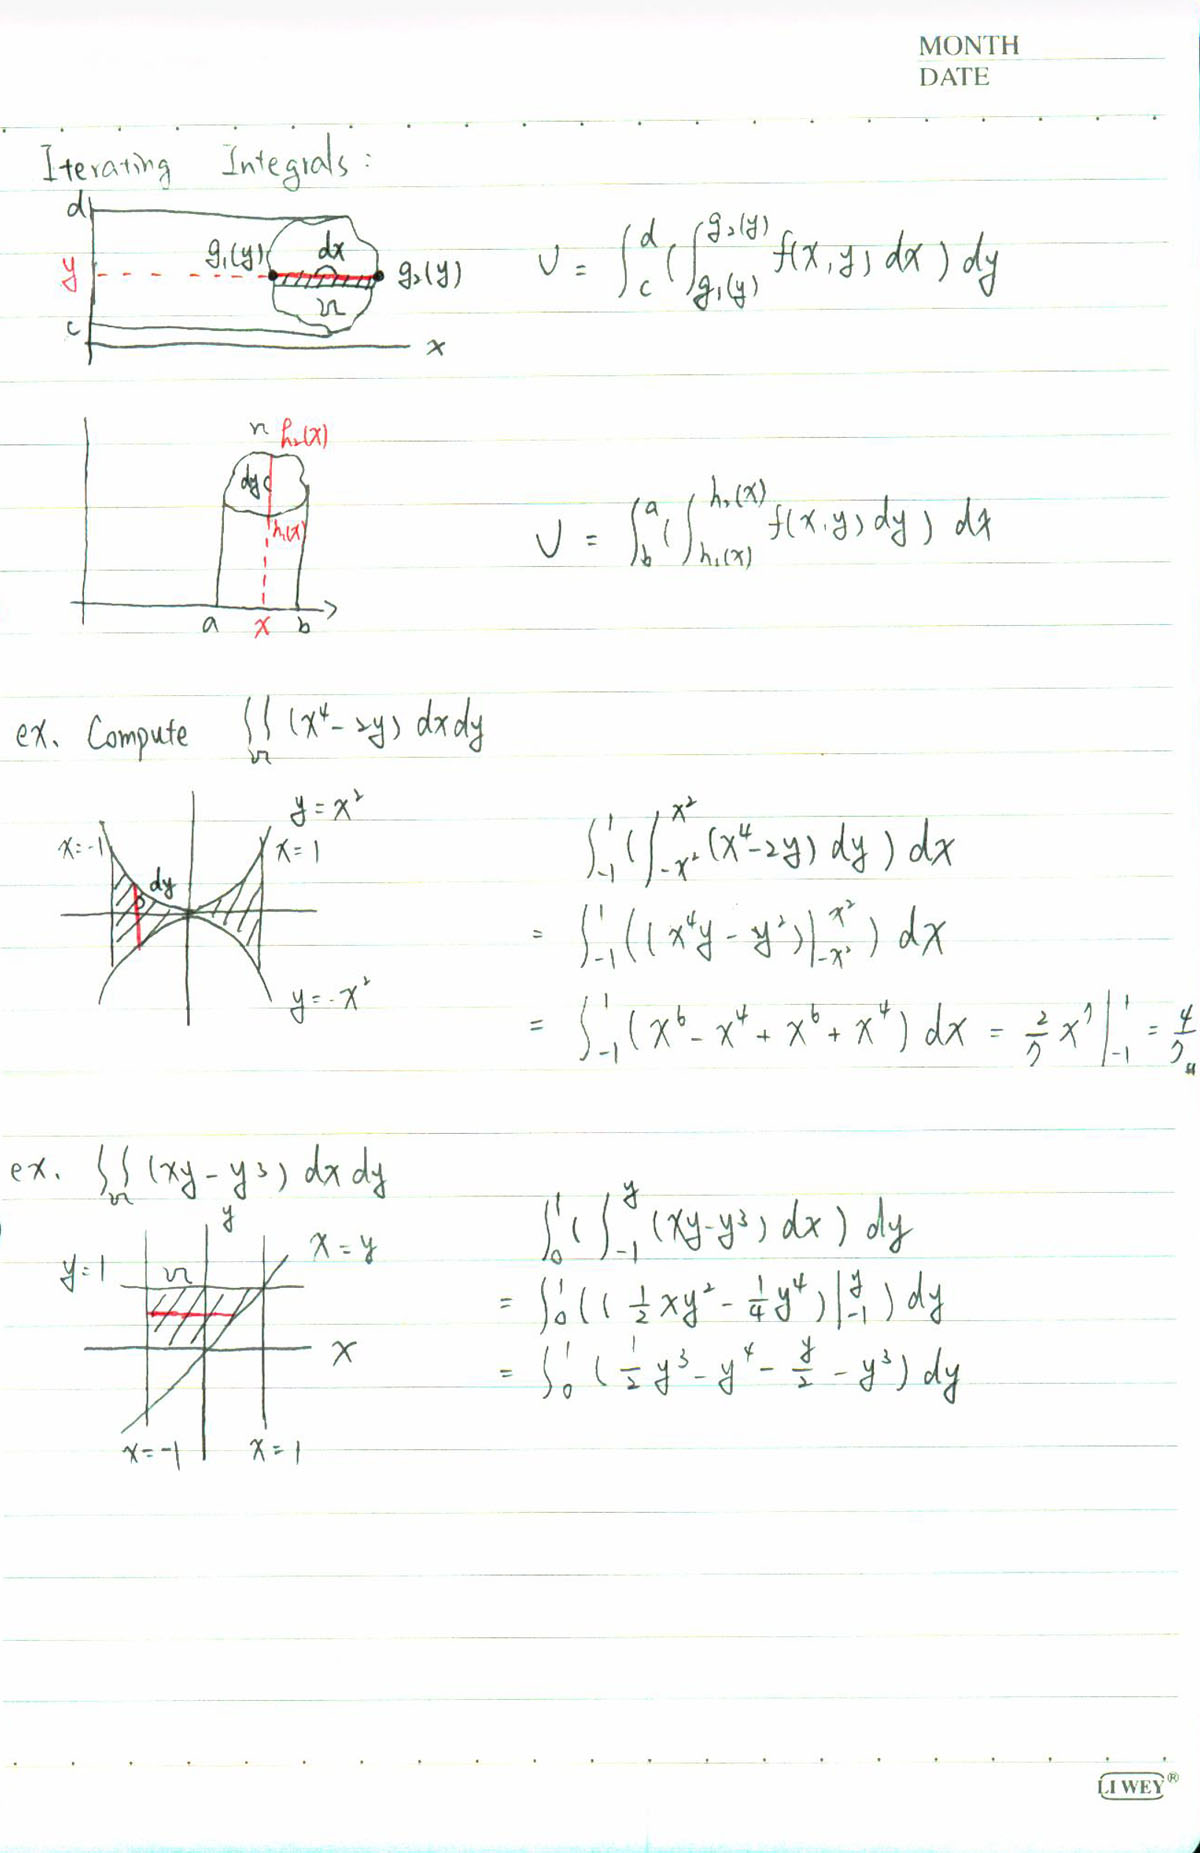 MONTH
DATE
Iterating Integrals :
d
g₁(y) dx
y g₂(y)
Ω
c
x
V = ∫_c^d ( ∫_{g₁(y)}^{g₂(y)} f(x,y) dx ) dy
Ω h₂(x)
dy
h₁(x)
a x b
V = ∫_b^a ( ∫_{h₁(x)}^{h₂(x)} f(x,y) dy ) dx
ex. Compute ∫∫_Ω (x⁴ - 2y) dx dy
y = x²
x = -1 x = 1
dy
y = -x²
∫_{-1}^1 ( ∫_{-x²}^{x²} (x⁴ - 2y) dy ) dx
= ∫_{-1}^1 ( (x⁴y - y²) |_{-x²}^{x²} ) dx
= ∫_{-1}^1 ( x⁶ - x⁴ + x⁶ + x⁴ ) dx = 2/7 x⁷ |_{-1}^1 = 4/7
ex. ∫∫_Ω (xy - y³) dx dy
y
x = y
y = 1 Ω
x
x = -1 x = 1
∫_0^1 ( ∫_{-1}^y (xy - y³) dx ) dy
= ∫_0^1 ( ( 1/2 xy² - 1/4 y⁴ ) |_{-1}^y ) dy
= ∫_0^1 ( 1/2 y³ - y⁴ - y/2 - y³ ) dy
LI WEY®